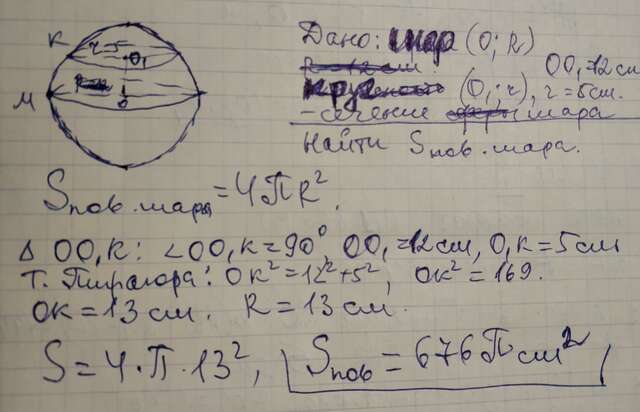 Дано: шар (O; R)
OO₁=12см
круг (O₁; r), r=5см.
- сечение шара
Найти Sпов. шара.
K r=5 O₁
M R O
Sпов. шара = 4ПR².
Δ OO₁K: ∠OO₁K=90° OO₁=12см, O₁K=5см
т. Пифагора: OK²=12²+5², OK²=169.
OK=13см. R=13см.
S=4·П·13², Sпов=676Псм²